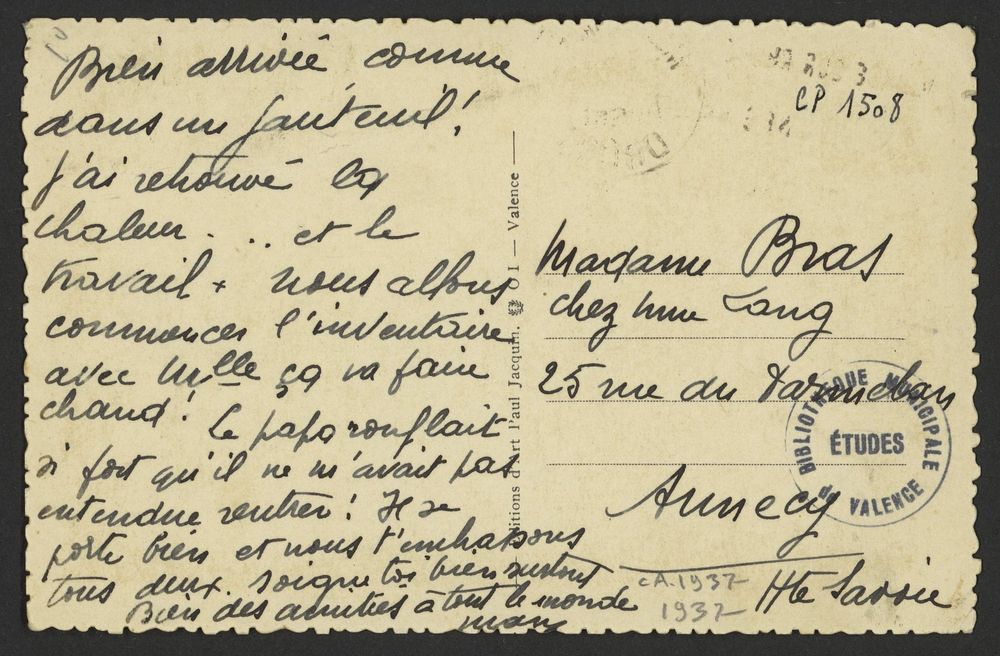 Bien arrivée comme
dans un fauteuil!
j'ai retrouvé la
chaleur... et le
travail. nous allons
commencer l'inventaire
avec Mlle ça va faire
chaud! Le papa ronflait
si fort qu'il ne m'avait pas
entendue rentrer! Il se
porte bien et nous t'embrassons
tous deux. soigne toi bien surtout
Bien des amitiés à tout le monde
Editions d'Art Paul Jacquin. O I — Valence —
CP 1508
Madame Bras
chez Mme Lang
25 rue du
Annecy
Hte Savoie
BIBLIOTHEQUE MUNICIPALE
ÉTUDES
de VALENCE
CA. 1937
1937